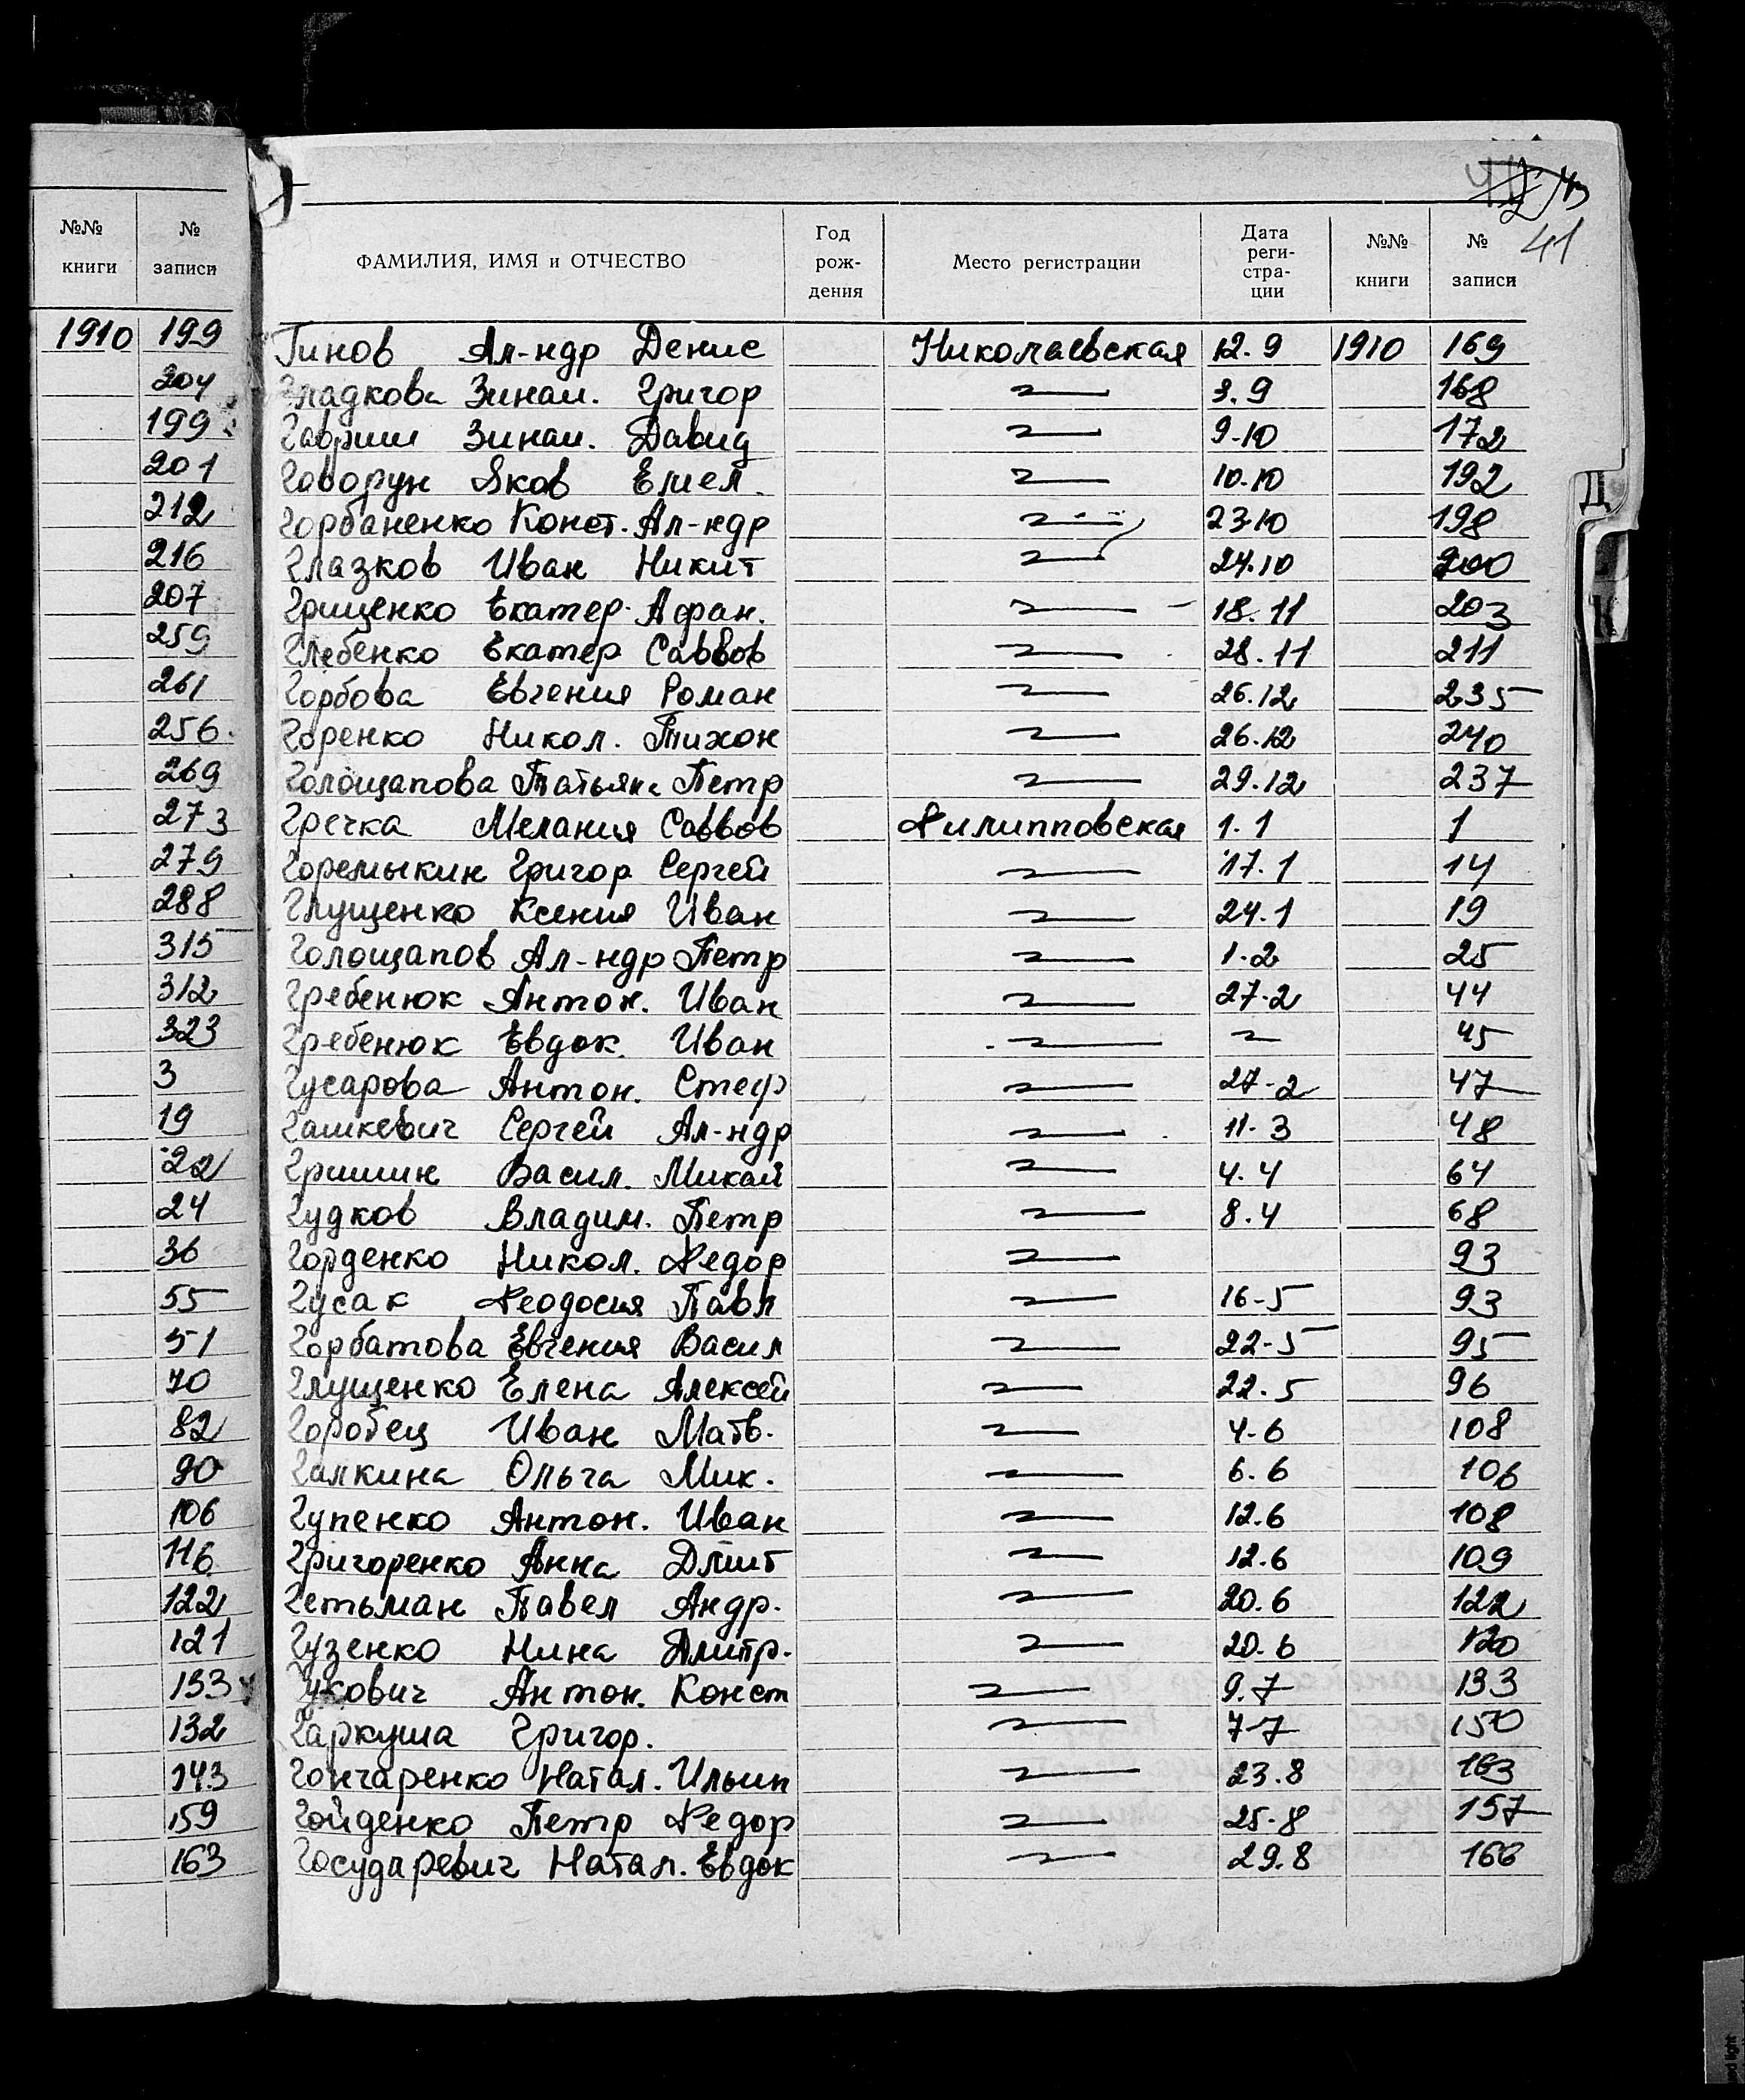 №№ книги № записи
1910 199
204
199
201
212
216
207
259
261
256
269
273
279
288
315
312
323
3
19
22
24
36
55
51
70
82
90
106
116
122
121
133
132
143
159
163
43
41
ФАМИЛИЯ, ИМЯ и ОТЧЕСТВО Год рож- дения Место регистрации Дата реги- стра- ции №№ книги № записи
Гинов Ал-ндр Денис Николаевская 12.9 1910 169
Гладкова Зинаи. Григор 〃 3.9 168
Гавриш Зинаи. Давид 〃 9-10 172
Говорун Яков Емел. 〃 10.10 192
Горбаненко Конст. Ал-ндр 〃 23.10 198
Глазков Иван Никит 〃 24.10 200
Грищенко Екатер. Афан. 〃 18.11 203
Глебенко Екатер Саввов 〃 28.11 211
Горбова Евгения Роман 〃 26.12 235
Горенко Никол. Тихон 〃 26.12 240
Голощапова Татьяна Петр 〃 29.12 237
Гречка Мелания Саввов Филипповская 1.1 1
Горемыкин Григор Сергей 〃 17.1 14
Глущенко Ксения Иван 〃 24.1 19
Голощапов Ал-ндр Петр 〃 1.2 25
Гребенюк Антон. Иван 〃 27.2 44
Гребенюк Евдок. Иван 〃 〃 45
Гусарова Антон. Стеф 〃 27-2 47
Гашкевич Сергей Ал-ндр 〃 11.3 48
Гришин Васил. Михай 〃 4.4 64
Гудков Владим. Петр 〃 8.4 68
Горденко Никол. Федор 〃 93
Гусак Феодосия Павл 〃 16-5 93
Горбатова Евгения Васил 〃 22-5 95
Глущенко Елена Алексей 〃 22.5 96
Горобец Иван Матв. 〃 4-6 108
Галкина Ольга Мих. 〃 6.6 106
Гупенко Антон. Иван 〃 12.6 108
Григоренко Анна Дмит 〃 12.6 109
Гетьман Павел Андр. 〃 20.6 122
Гузенко Нина Дмитр. 〃 20.6 120
Гукович Антон. Конст 〃 9.7 133
Гаркуша Григор. 〃 7-7 150
Гончаренко Натал. Ильин 〃 23.8 163
Гойденко Петр Федор 〃 25-8 157
Государевич Натал. Евдок 〃 29.8 166
Д
К